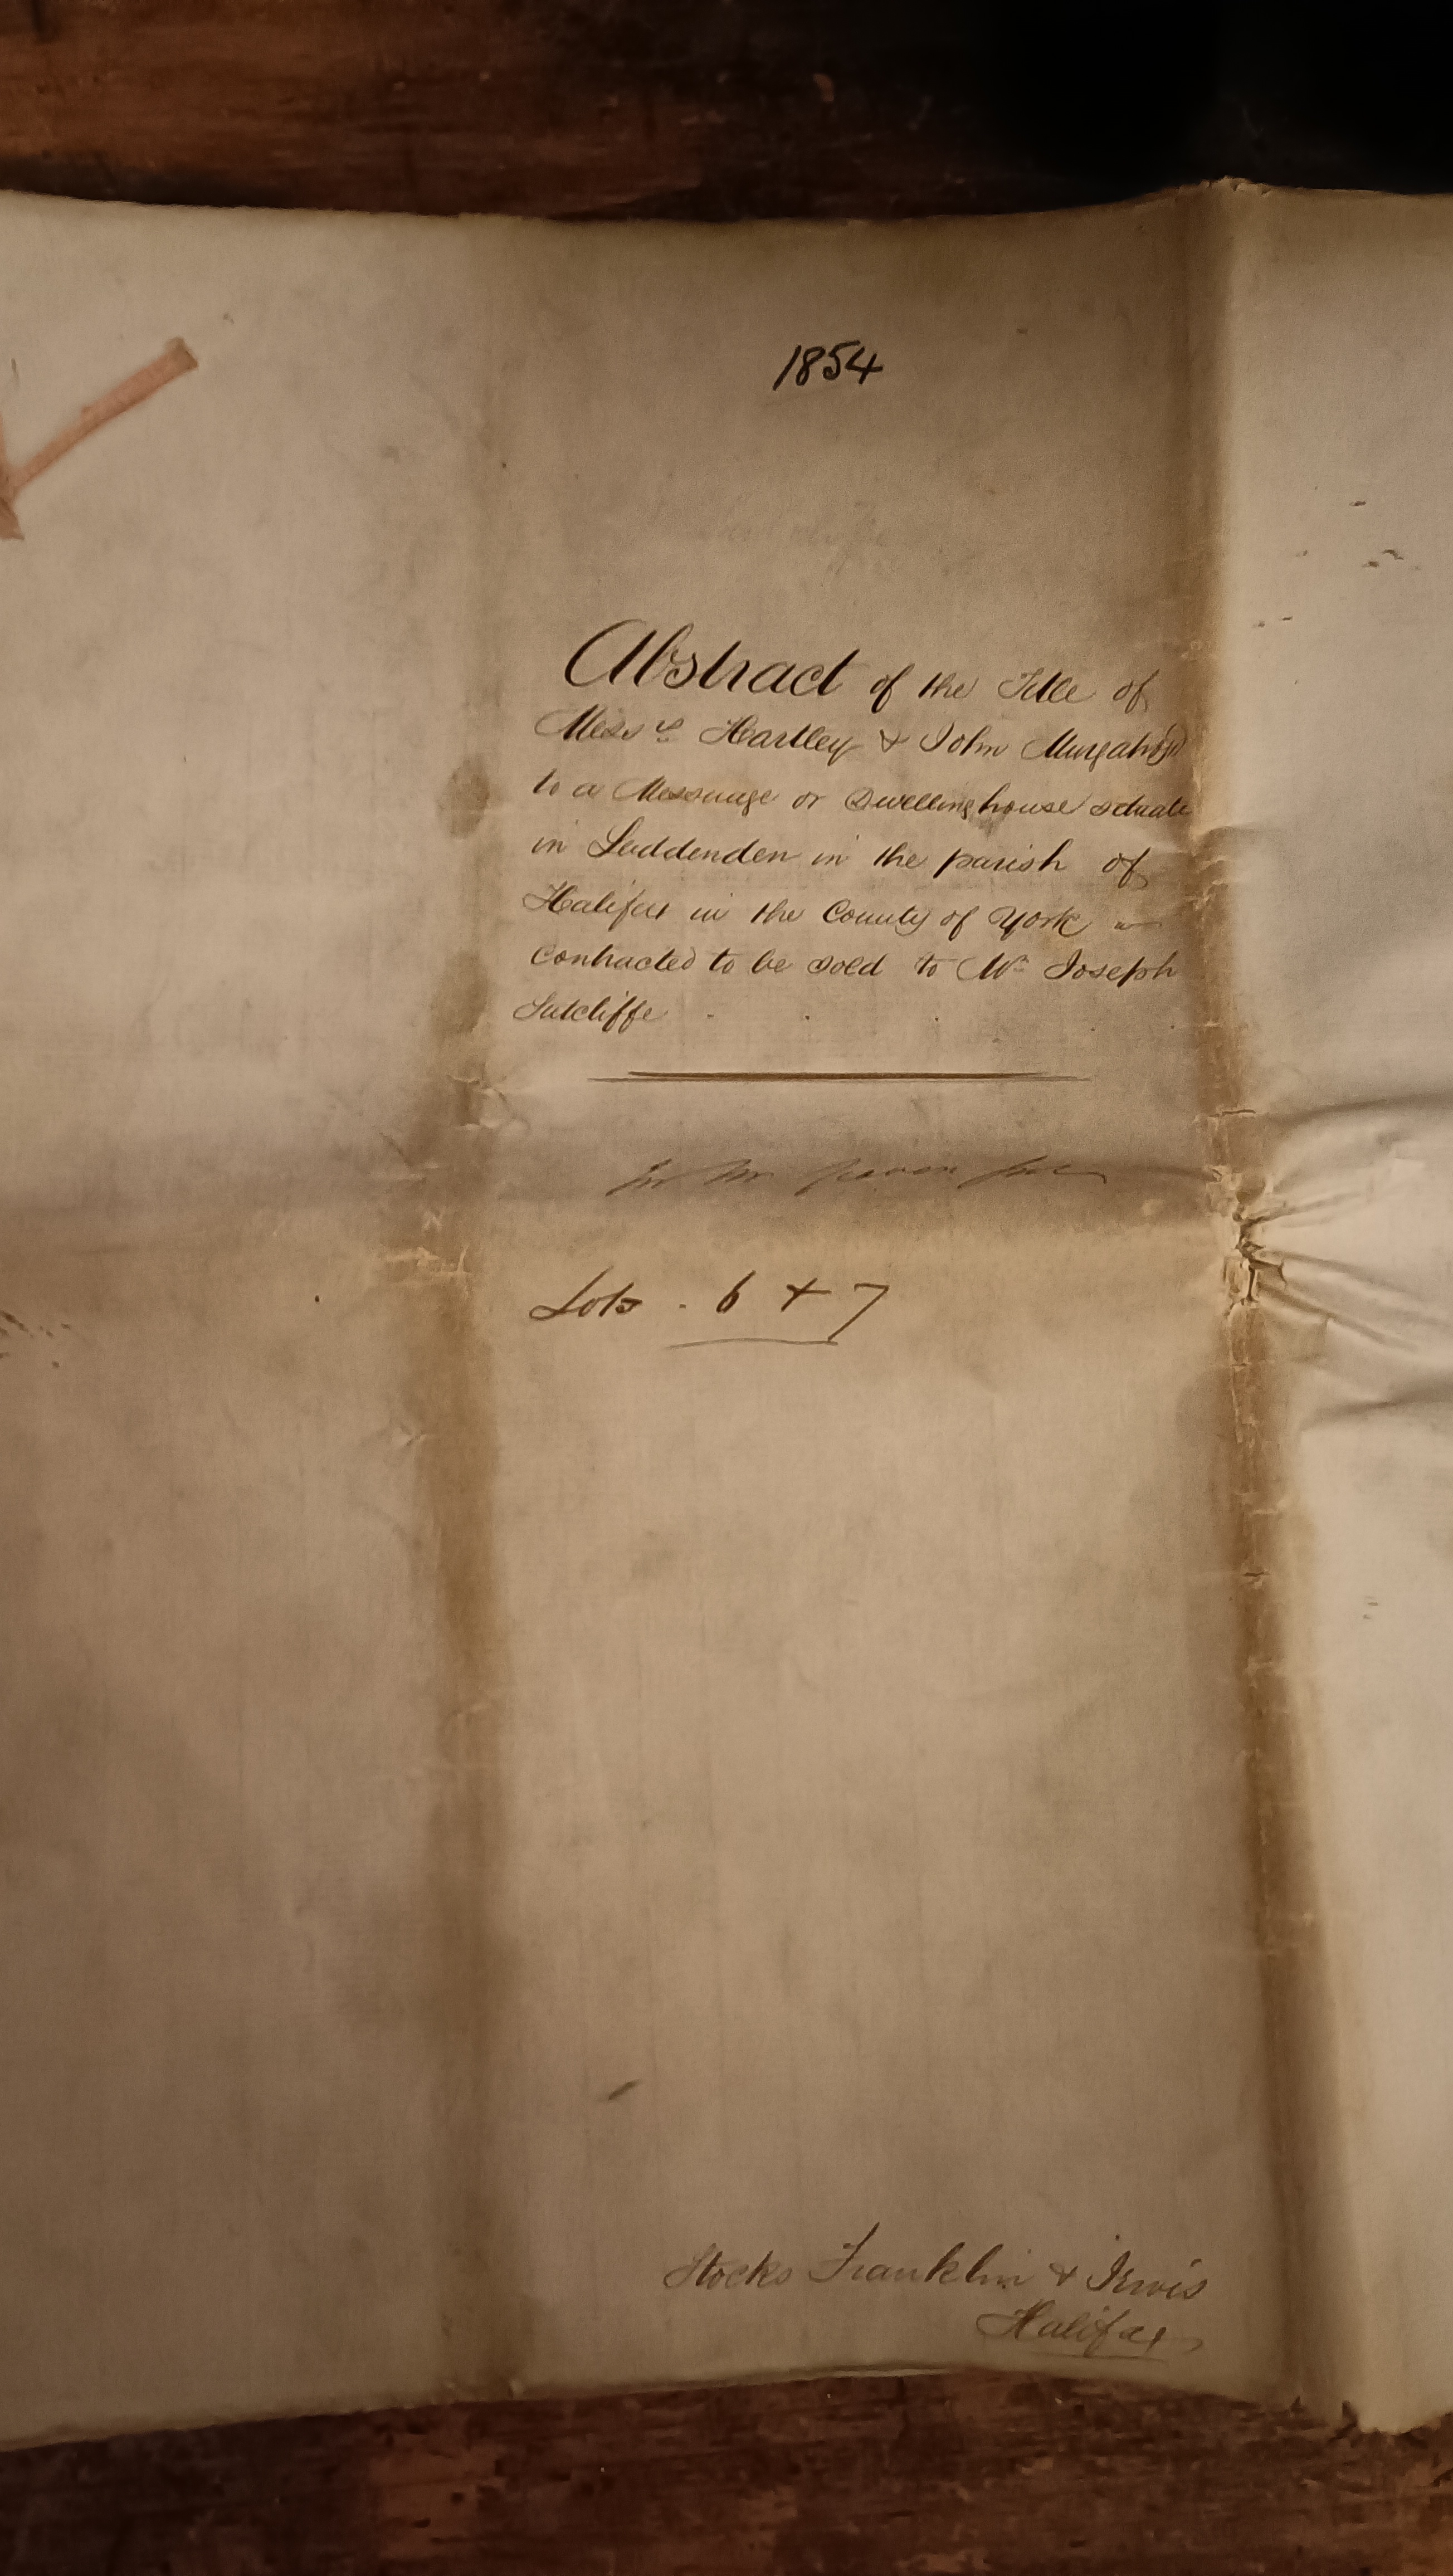 1854
Abstract of the Title of
Messrs Hartley & John Murgatroyd
to a Messuage or Dwellinghouse situate
in Luddenden in the parish of
Halifax in the County of York
contracted to be sold to Mr Joseph
Sutcliffe
Lots . 6 + 7
Stocks Franklin & Irwis
Halifax